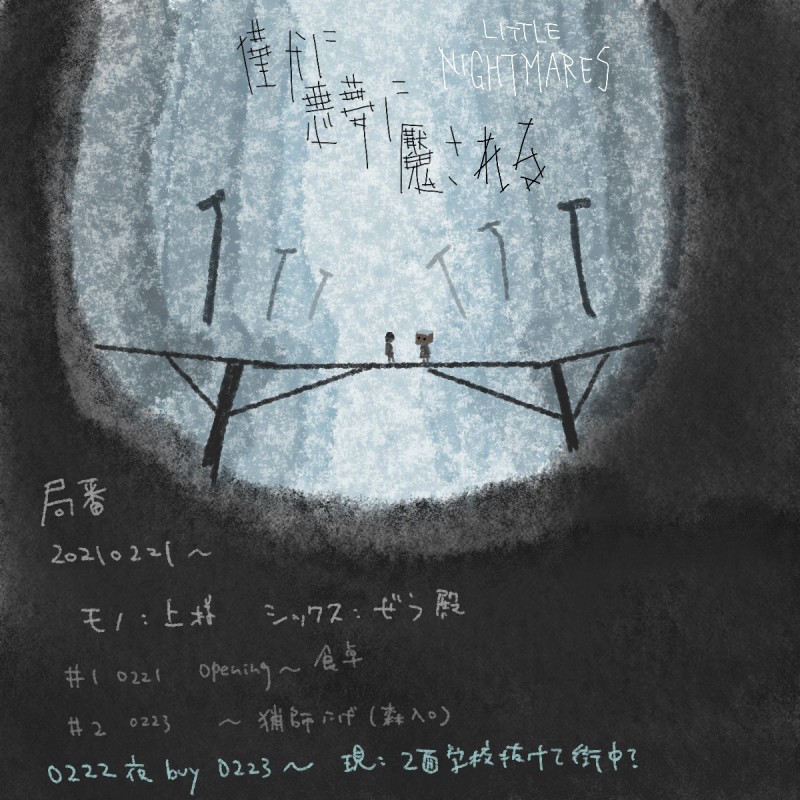 僅かに
悪夢に
魘される
LITTLE
NIGHTMARES
局番
20210221〜
モノ：上様　シックス：ぜう殿
#1 0221 Opening〜食卓
#2 0223 〜猟師にげ(森入口)
0222夜 buy 0223〜 現：2面学校抜けて街中？